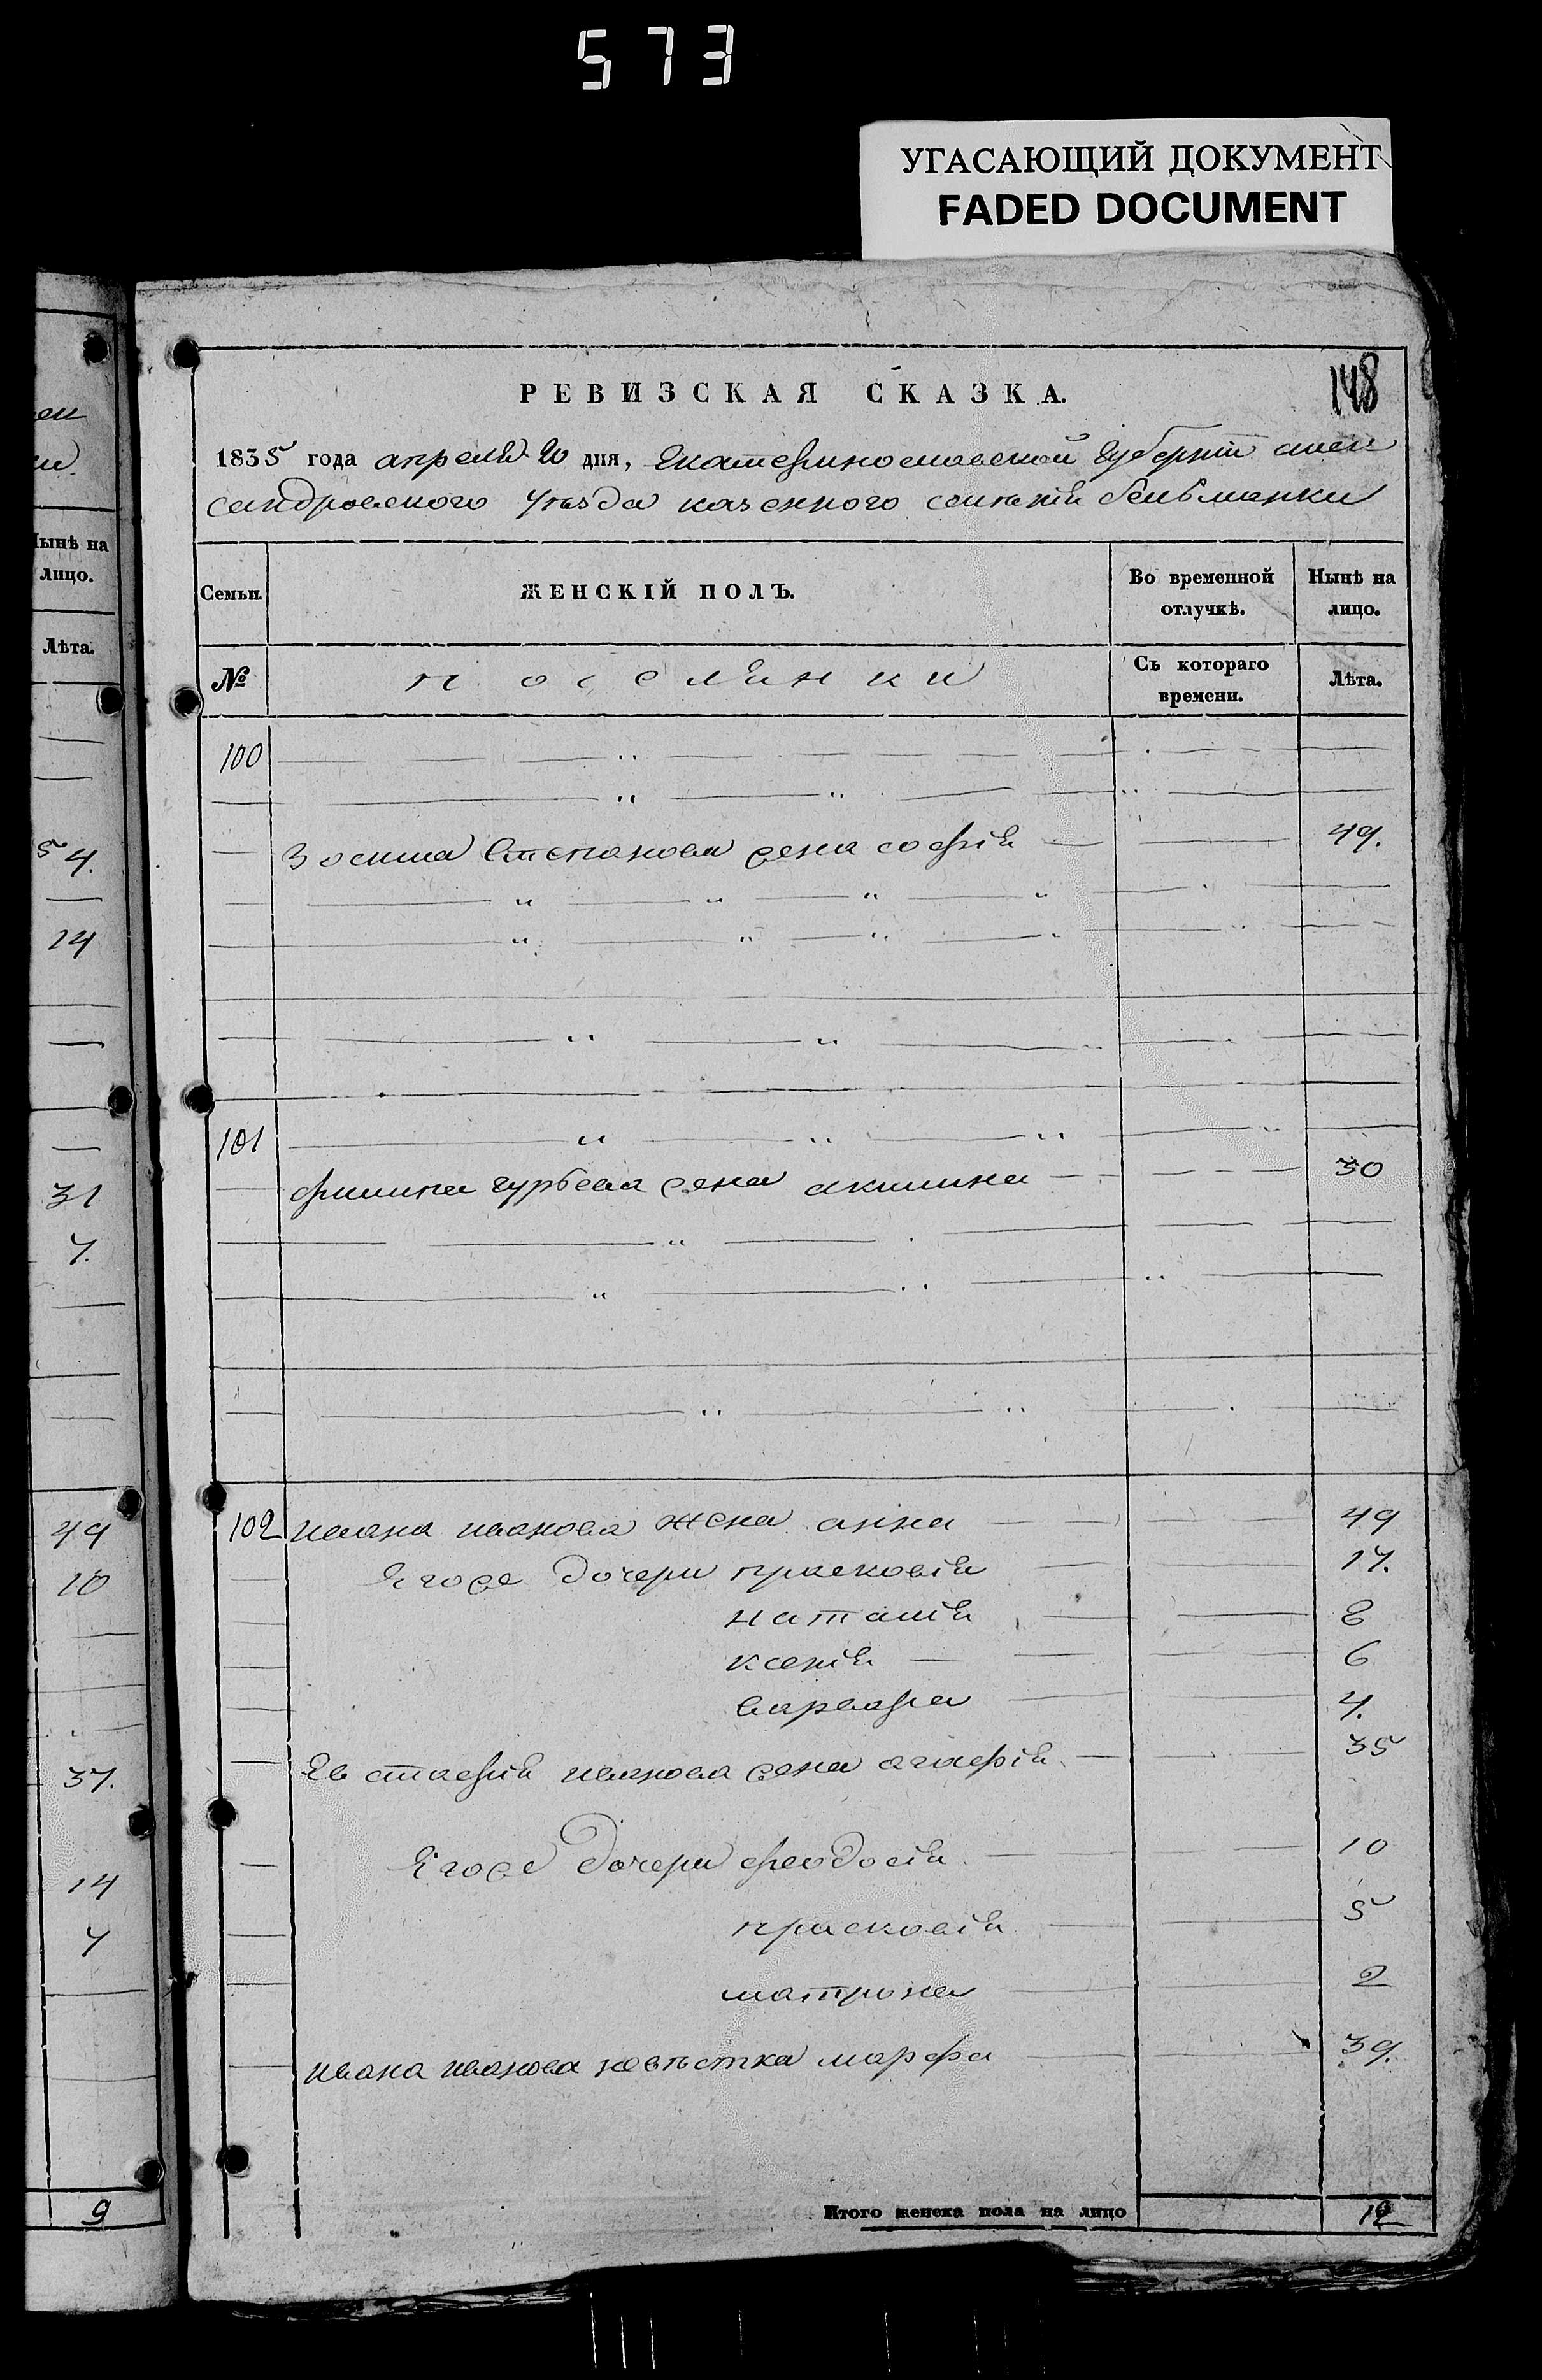 573
УГАСАЮЩИЙ ДОКУМЕНТ
FADED DOCUMENT
148
РЕВИЗСКАЯ СКАЗКА.
1835 года апреля 20 дня, Екатеринославской губернiи алек
сандровского уѣзда казенного селенiя бельманки
Семьи.
ЖЕНСКIЙ ПОЛЪ.
Во временной отлучкѣ.
Нынѣ на лицо.
№
поселянки
Съ котораго времени.
Лѣта.
100
Зосима Степанова жена софiя 49.
101
филипа гурьева жена акилина 30
102 ивана иванова жена анна 49
Егоже дочери прасковiя 17.
наталiя 8
ксенiя 6
варвара 4.
Евстафiя иванова жена агафiя 35
Егоже дочери феодосiя 10
прасковiя 5
матрона 2
ивана иванова невѣстка марфа 39.
Итого женска пола на лицо 12
Нынѣ на
лицо.
Лѣта.
54.
14
31
7.
49
10
37.
14
7
9